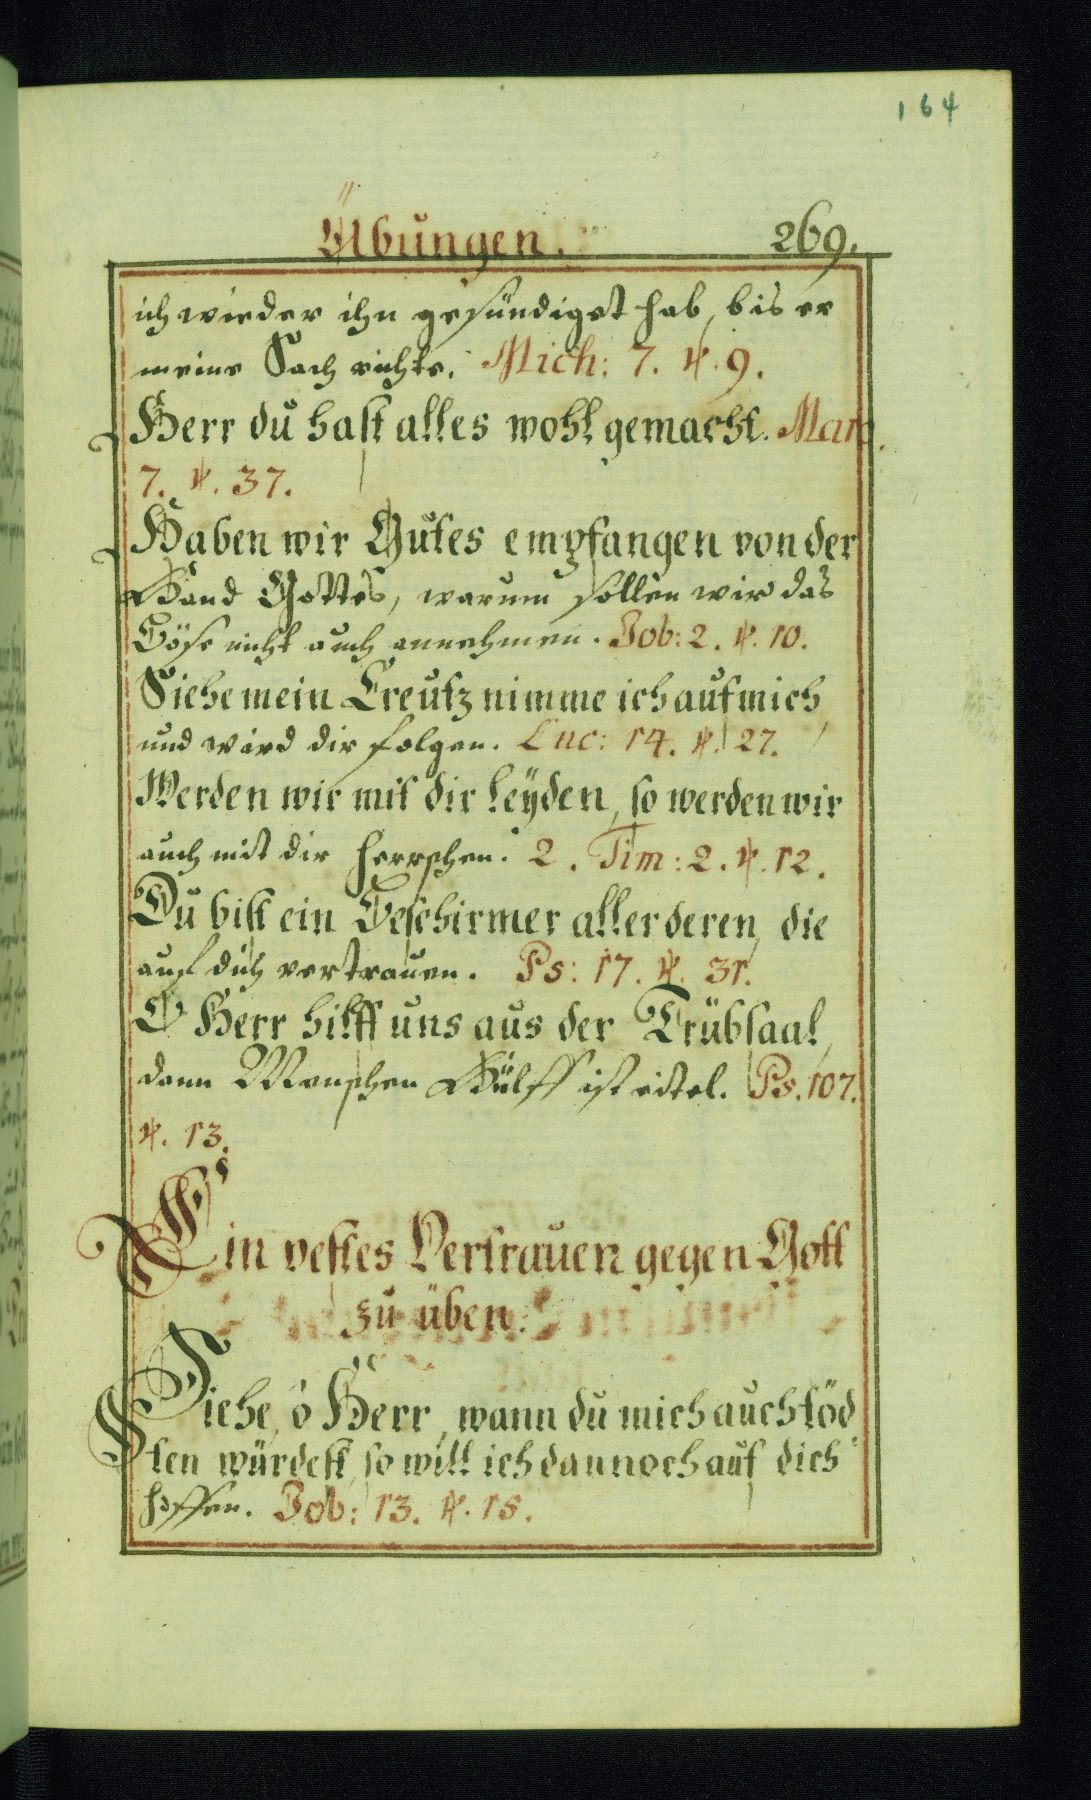 164
Übungen. 269.
ich wieder ihn gesündiget hab, bis er
meine Sach richte. Mich: 7. ℣. 9.
Herr du hast alles wohl gemacht. Marc.
7. ℣. 37.
Haben wir Gutes empfangen von der
Hand Gottes, warum sollen wir das
Böse nicht auch annehmen. Job: 2. ℣. 10.
Siehe mein Creutz nimme ich auf mich
und wird dir folgen. Luc: 14. ℣. 27.
Werden wir mit dir leÿden, so werden wir
auch mit dir herrschen. 2. Tim: 2. ℣. 12.
Du bist ein Beschirmer aller deren, die
auf dich vertrauen. Ps: 17. ℣. 31.
O Herr hilff uns aus der Trübsaal,
dann Menschen Hülff ist eitel. Ps. 107.
℣. 13.
Ein vestes Vertrauen gegen Gott
zu üben.
Siehe, ô Herr, wann du mich auch töd
ten würdest, so will ich dannoch auf dich
hoffen. Job: 13. ℣. 15.